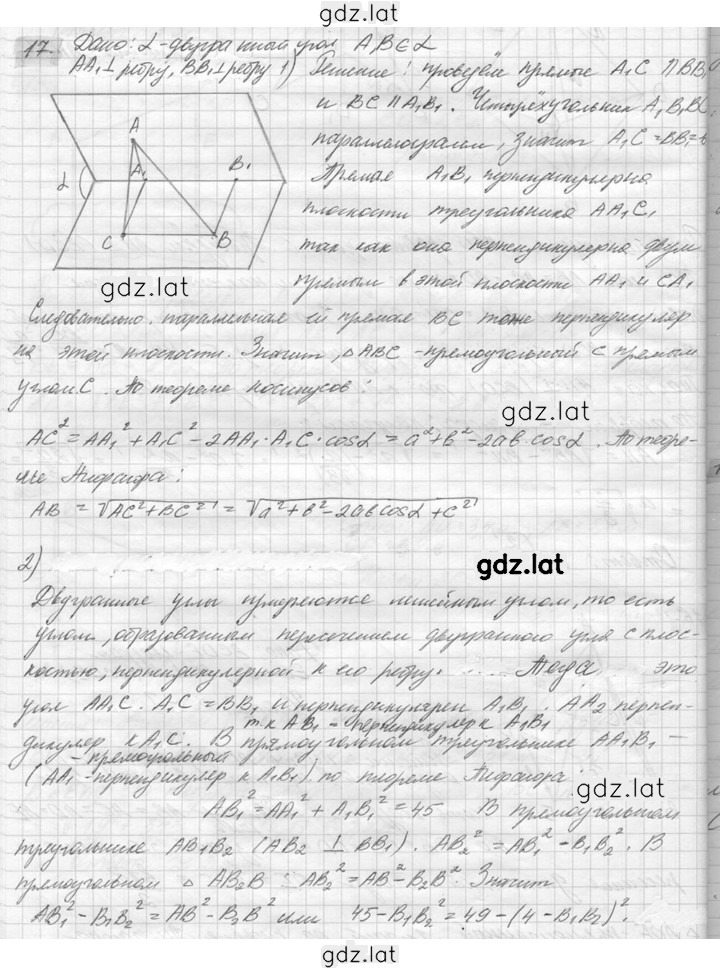 gdz.lat
17. Дано: α-двугранный угол A,B∈α
AA₁⊥ребру, BB₁⊥ребру 1) Решение: проведём прямые A₁C ∏ BB₁
и BC ∏ A₁B₁. Четырёхугольник A₁B₁BC
параллелограмм, значит A₁C=BB₁=b
Прямая A₁B₁ перпендикулярна
плоскости треугольника AA₁C,
так как она перпендикулярна двум
прямым в этой плоскости AA₁ и CA₁
A
A₁
B₁
α
C
B
gdz.lat
Следовательно. параллельная ей прямая BC тоже перпендикуляр
на этой плоскости. Значит, △ABC -прямоугольный с прямым
углом C. По теореме косинусов:
gdz.lat
AC² = AA₁² + A₁C² - 2AA₁·A₁C·cosα = a²+b²-2ab cosα. По теоре-
ме Пифагора:
AB = √AC²+BC² = √a²+b²-2ab cosα+c²
2)
gdz.lat
Двугранные углы измеряются линейным углом, то есть
углом, образованным пересечением двугранного угла с плос-
костью, перпендикулярной к его ребру. Тогда это
угол AA₁C. A₁C = BB₁ и перпендикулярен A₁B₁. AA₂ перпен-
т.к AB₁ - перпендикуляр к A₁B₁
дикуляр к A₁C. В прямоугольном треугольнике AA₁B₁ -
- прямоугольный
(AA₁ -перпендикуляр к A₁B₁) по теореме Пифагора:
AB₁² = AA₁² + A₁B₁² = 45 В прямоугольном
треугольнике AB₁B₂ (AB₂ ⊥ BB₁). AB₂² = AB₁² - B₁B₂². В
прямоугольном △ AB₂B: AB₂² = AB² - B₂B². Значит
AB₁² - B₁B₂² = AB² - B₂B² или 45 - B₁B₂² = 49 - (4 - B₁B₂)².
gdz.lat